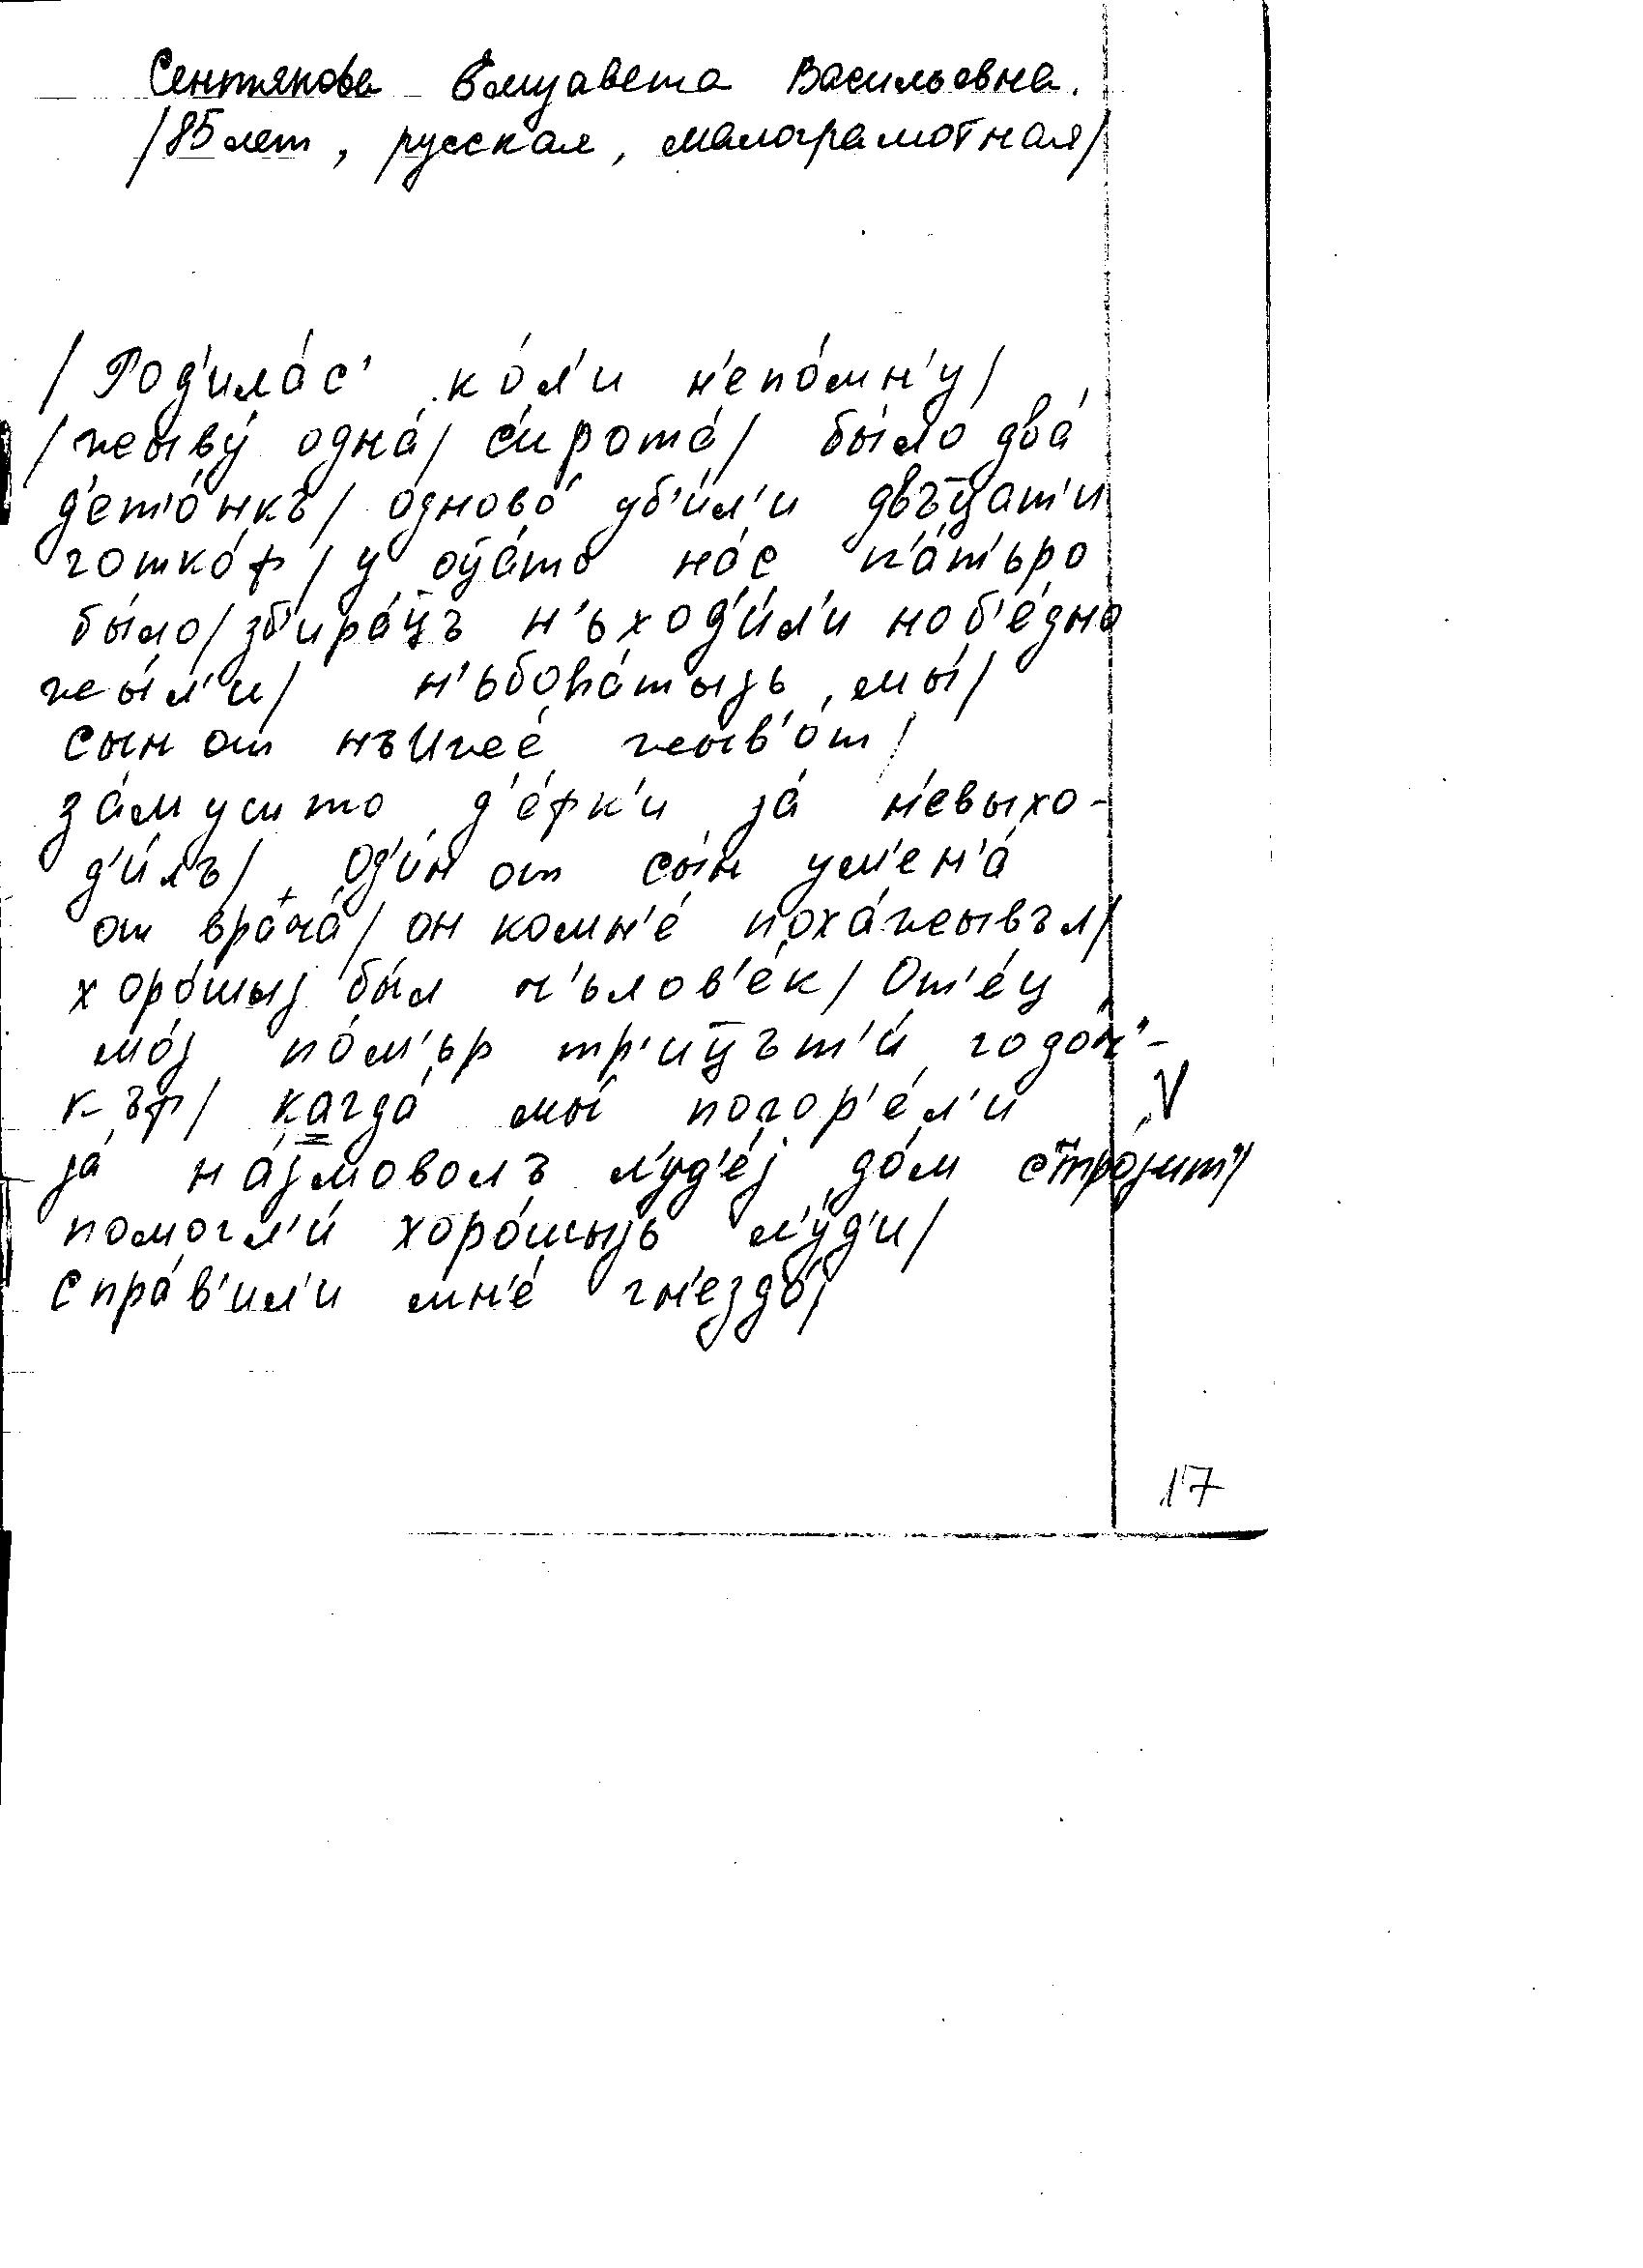 Сентякова Елизавета Васильевна.
/85 лет, русская, малограмотная/
/ Род'ила́с' ко́л'и н'епо́мн'у/
/жыву́ одна́/ с'ирота́/ бы́ло два́
д'ет'о́нкъ/ одново́ уб'и́л'и двъц̅ат'и
готко́ф/ у оц̅а́то на́с п'а́т'ьро
бы́ло/ зб'ира́ц̅ъ н'ьход'и́л'и но б'е́дно
жы́л'и/ н'ьбога́тыjь мы́/
сын от нъиже́ жыв'о́т/
за́муш то д'е́фк'и jа́ н'евыхо-
д'и́лъ/ Од'и́н от сы́н ум'ен'а́
от врача́/ он комн'е́ поха́жывъл/
хоро́шыj бы́л ч'ьлов'е́к/ От'е́ц
мо́j по́м'ьр тр'иц̅ът'и́ годо́ч'-
къф/ кагда́ мы́ погор'е́л'и V
jа́ на́jмоволъ л'уд'е́j до́м стро́jит'/
помогл'и́ хоро́шыjь л'у́д'и/
спра́в'ил'и мн'е́ гн'ездо́/
17